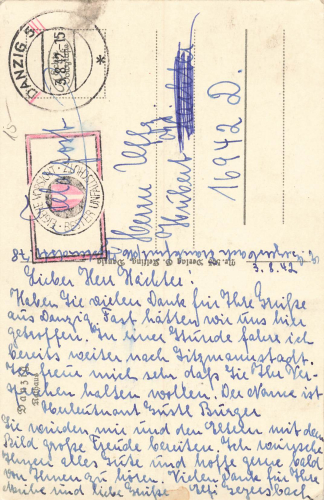 DANZIG 5
3.8.42-15
*
Feldpost
Herrn Uffz.
Hubert
16942 D.
Danzig
Rathaus
3.8.42
Lieber Herr Hächte!
Haben Sie vielen Dank für Ihre Grüße
aus Danzig. Fast hätten wir uns hier
getroffen. In einer Stunde fahre ich
bereits weiter nach Litzmannstadt.
Ich freue mich sehr daß Sie Ihr Ver-
sprechen halten wollen. Der Name ist
Oberleutnant Ernst Burger
Sie würden mir und den Eltern mit dem
Bild große Freude bereiten. Ich wünsche
Ihnen alles Gute und hoffe gerne bald
von Ihnen zu hören. Vielen Dank für Ihre
Mühe und liebe Grüße